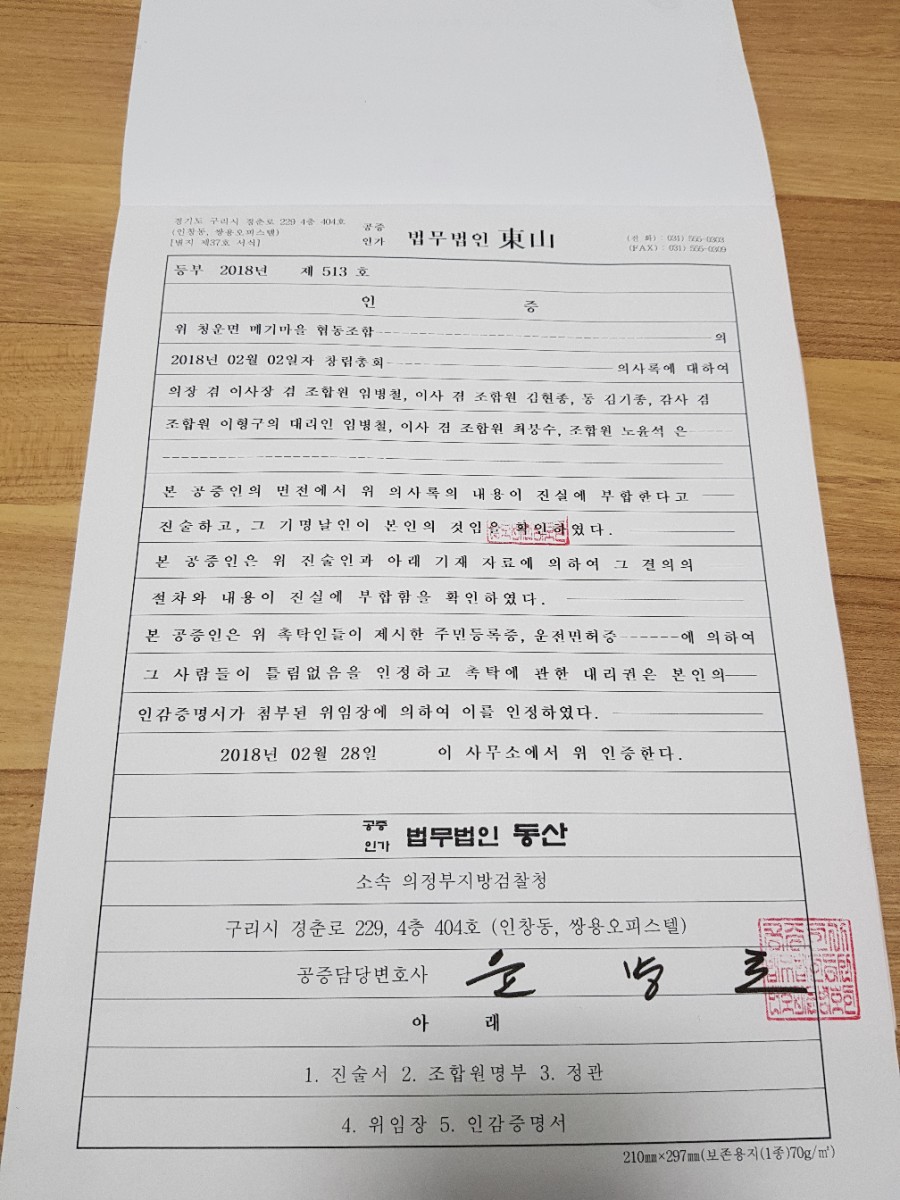 경기도 구리시 경춘로 229 4층 404호
(인창동, 쌍용오피스텔)
[별지 제37호 서식]
공증
인가
법무법인 東山
(전 화) : 031) 555-0303
(FAX) : 031) 555-0309
등부 2018년 제 513 호
인 증
위 청운면 메기마을 협동조합 의
2018년 02월 02일자 창립총회 의사록에 대하여
의장 겸 이사장 겸 조합원 임병철, 이사 겸 조합원 김현종, 동 김기종, 감사 겸
조합원 이형구의 대리인 임병철, 이사 겸 조합원 최붕수, 조합원 노윤석 은
본 공증인의 면전에서 위 의사록의 내용이 진실에 부합한다고
진술하고, 그 기명날인이 본인의 것임을 확인하였다.
본 공증인은 위 진술인과 아래 기재 자료에 의하여 그 결의의
절차와 내용이 진실에 부합함을 확인하였다.
본 공증인은 위 촉탁인들이 제시한 주민등록증, 운전면허증 에 의하여
그 사람들이 틀림없음을 인정하고 촉탁에 관한 대리권은 본인의
인감증명서가 첨부된 위임장에 의하여 이를 인정하였다.
2018년 02월 28일 이 사무소에서 위 인증한다.
공증
인가
법무법인 동산
소속 의정부지방검찰청
구리시 경춘로 229, 4층 404호 (인창동, 쌍용오피스텔)
공증담당변호사
아 래
1. 진술서 2. 조합원명부 3. 정관
4. 위임장 5. 인감증명서
210㎜×297㎜(보존용지(1종)70g/㎡)